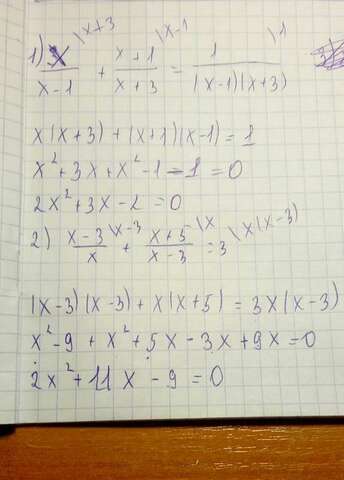 1) x/(x-1) \x+3 + (x+1)/(x+3) \x-1 = 1/((x-1)(x+3)) \1
x(x+3) + (x+1)(x-1) = 1
x² + 3x + x² - 1 - 1 = 0
2x² + 3x - 2 = 0
2) (x-3)/x \x-3 + (x+5)/(x-3) \x = 3 \x(x-3)
(x-3)(x-3) + x(x+5) = 3x(x-3)
x² - 9 + x² + 5x - 3x + 9x = 0
2x² + 11x - 9 = 0